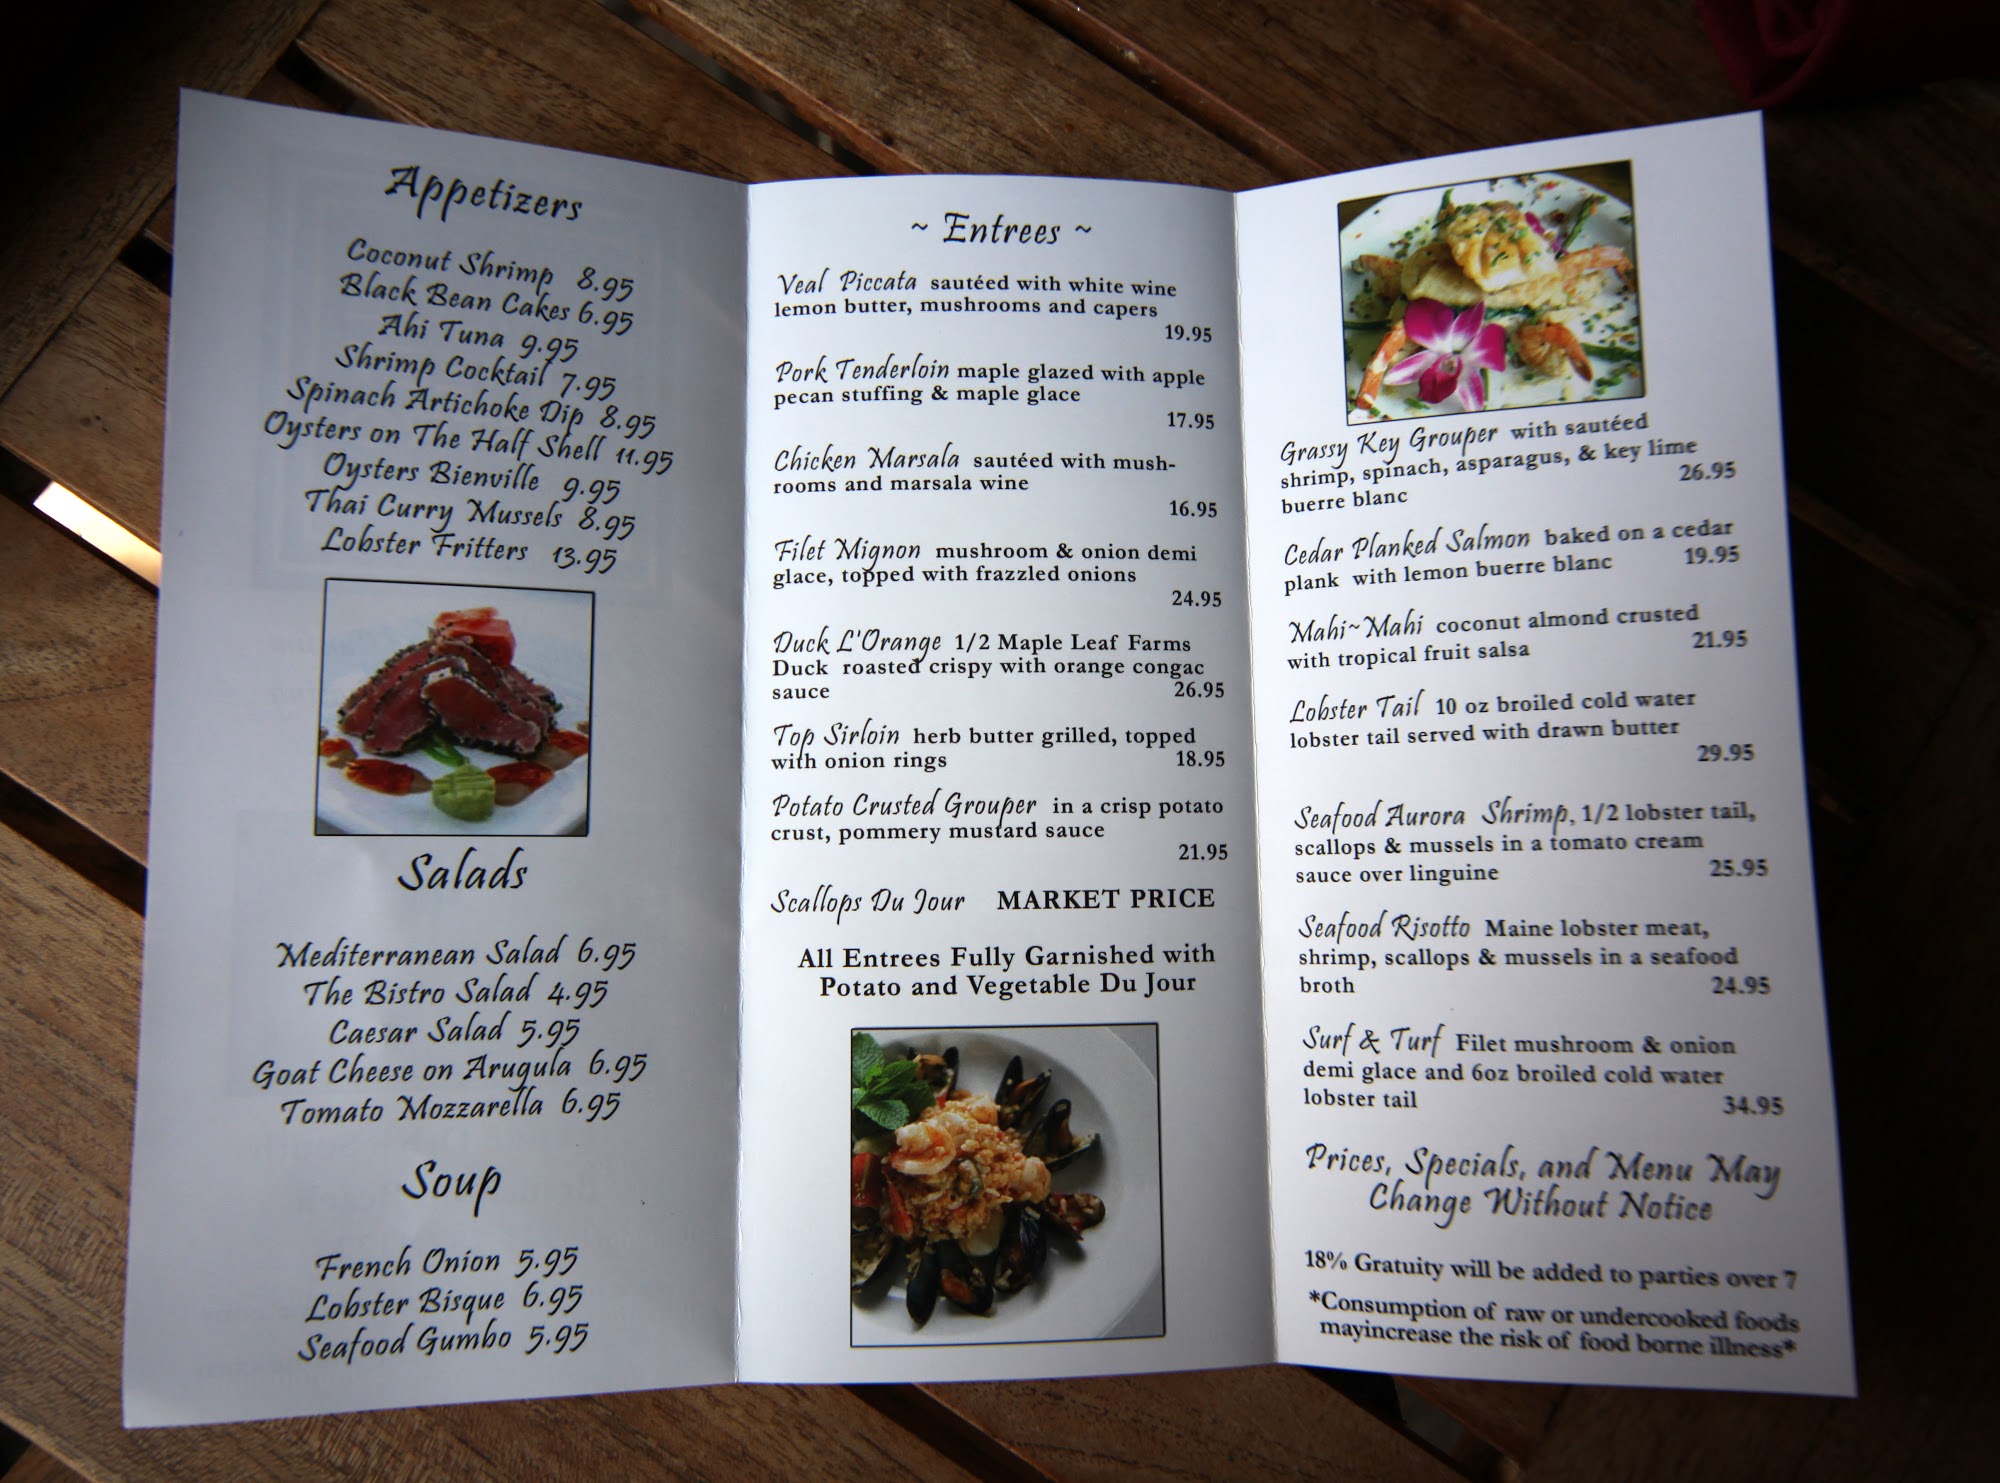 Appetizers
Coconut Shrimp 8.95
Black Bean Cakes 6.95
Ahi Tuna 9.95
Shrimp Cocktail 7.95
Spinach Artichoke Dip 8.95
Oysters on The Half Shell 11.95
Oysters Bienville 9.95
Thai Curry Mussels 8.95
Lobster Fritters 13.95
Salads
Mediterranean Salad 6.95
The Bistro Salad 4.95
Caesar Salad 5.95
Goat Cheese on Arugula 6.95
Tomato Mozzarella 6.95
Soup
French Onion 5.95
Lobster Bisque 6.95
Seafood Gumbo 5.95
~ Entrees ~
Veal Piccata sautéed with white wine
lemon butter, mushrooms and capers
19.95
Pork Tenderloin maple glazed with apple
pecan stuffing & maple glace
17.95
Chicken Marsala sautéed with mush-
rooms and marsala wine
16.95
Filet Mignon mushroom & onion demi
glace, topped with frazzled onions
24.95
Duck L'Orange 1/2 Maple Leaf Farms
Duck roasted crispy with orange congac
sauce 26.95
Top Sirloin herb butter grilled, topped
with onion rings 18.95
Potato Crusted Grouper in a crisp potato
crust, pommery mustard sauce
21.95
Scallops Du Jour MARKET PRICE
All Entrees Fully Garnished with
Potato and Vegetable Du Jour
Grassy Key Grouper with sautéed
shrimp, spinach, asparagus, & key lime
buerre blanc 26.95
Cedar Planked Salmon baked on a cedar
plank with lemon buerre blanc 19.95
Mahi~Mahi coconut almond crusted
with tropical fruit salsa 21.95
Lobster Tail 10 oz broiled cold water
lobster tail served with drawn butter
29.95
Seafood Aurora Shrimp, 1/2 lobster tail,
scallops & mussels in a tomato cream
sauce over linguine 25.95
Seafood Risotto Maine lobster meat,
shrimp, scallops & mussels in a seafood
broth 24.95
Surf & Turf Filet mushroom & onion
demi glace and 6oz broiled cold water
lobster tail 34.95
Prices, Specials, and Menu May
Change Without Notice
18% Gratuity will be added to parties over 7
*Consumption of raw or undercooked foods
mayincrease the risk of food borne illness*